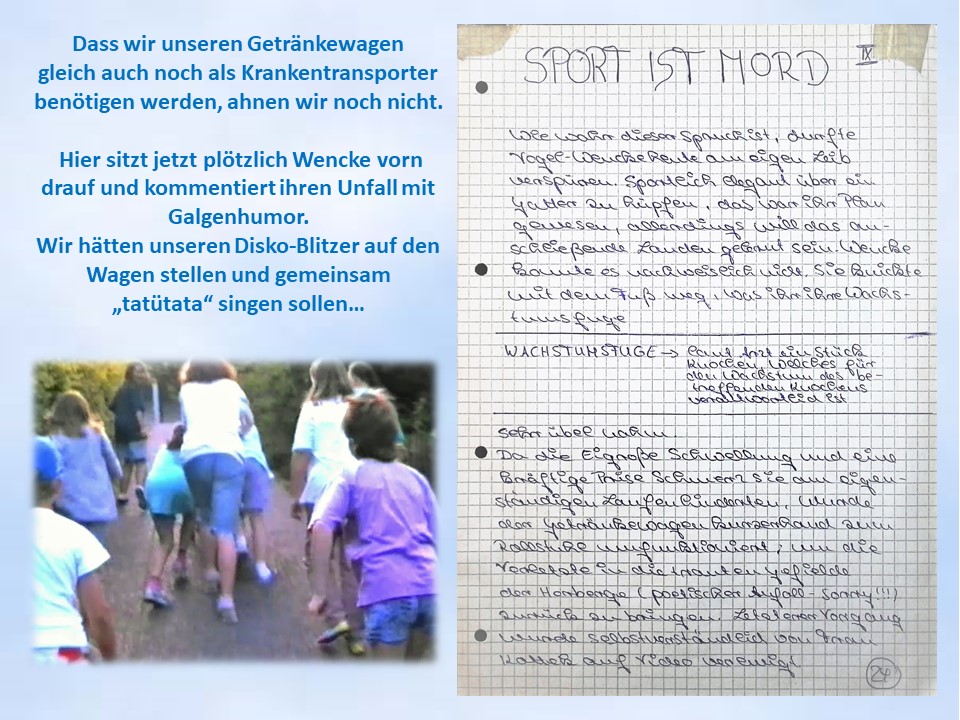 Dass wir unseren Getränkewagen
gleich auch noch als Krankentransporter
benötigen werden, ahnen wir noch nicht.
Hier sitzt jetzt plötzlich Wencke vorn
drauf und kommentiert ihren Unfall mit
Galgenhumor.
Wir hätten unseren Disko-Blitzer auf den
Wagen stellen und gemeinsam
„tatütata“ singen sollen…
SPORT IST MORD IX
Wie wahr dieser Spruch ist, durfte
Vogel-Wencke heute am eigen Leib
verspüren. Sportlich elegant über ein
Gatter zu hüpfen, das war ihr Plan
gewesen, allerdings will das an-
schließende Landen gekonnt sein. Wencke
konnte es nachweislich nicht. Sie knickte
mit dem Fuß weg, was ihr ihre Wachs-
tumsfuge
WACHSTUMSFUGE → laut Arzt ein Stück
Knochen, welches für
den Wachstum des be-
treffenden Knochens
verantwortlich ist
sehr übel nahm.
Da die Eigroße Schwellung und eine
kräftige Prise Schmerz sie am eigen-
ständigen Laufen hinderten, wurde
der Getränkewagen kurzerhand zum
Rollstuhl umfunktioniert, um die
Verletzte in die trauten Gefielde
der Herberge (poetischer Anfall - sorry!!!)
zurück zu bringen. Letzterer Vorgang
wurde selbstverständlich von Frau
auf Video verewigt.
24